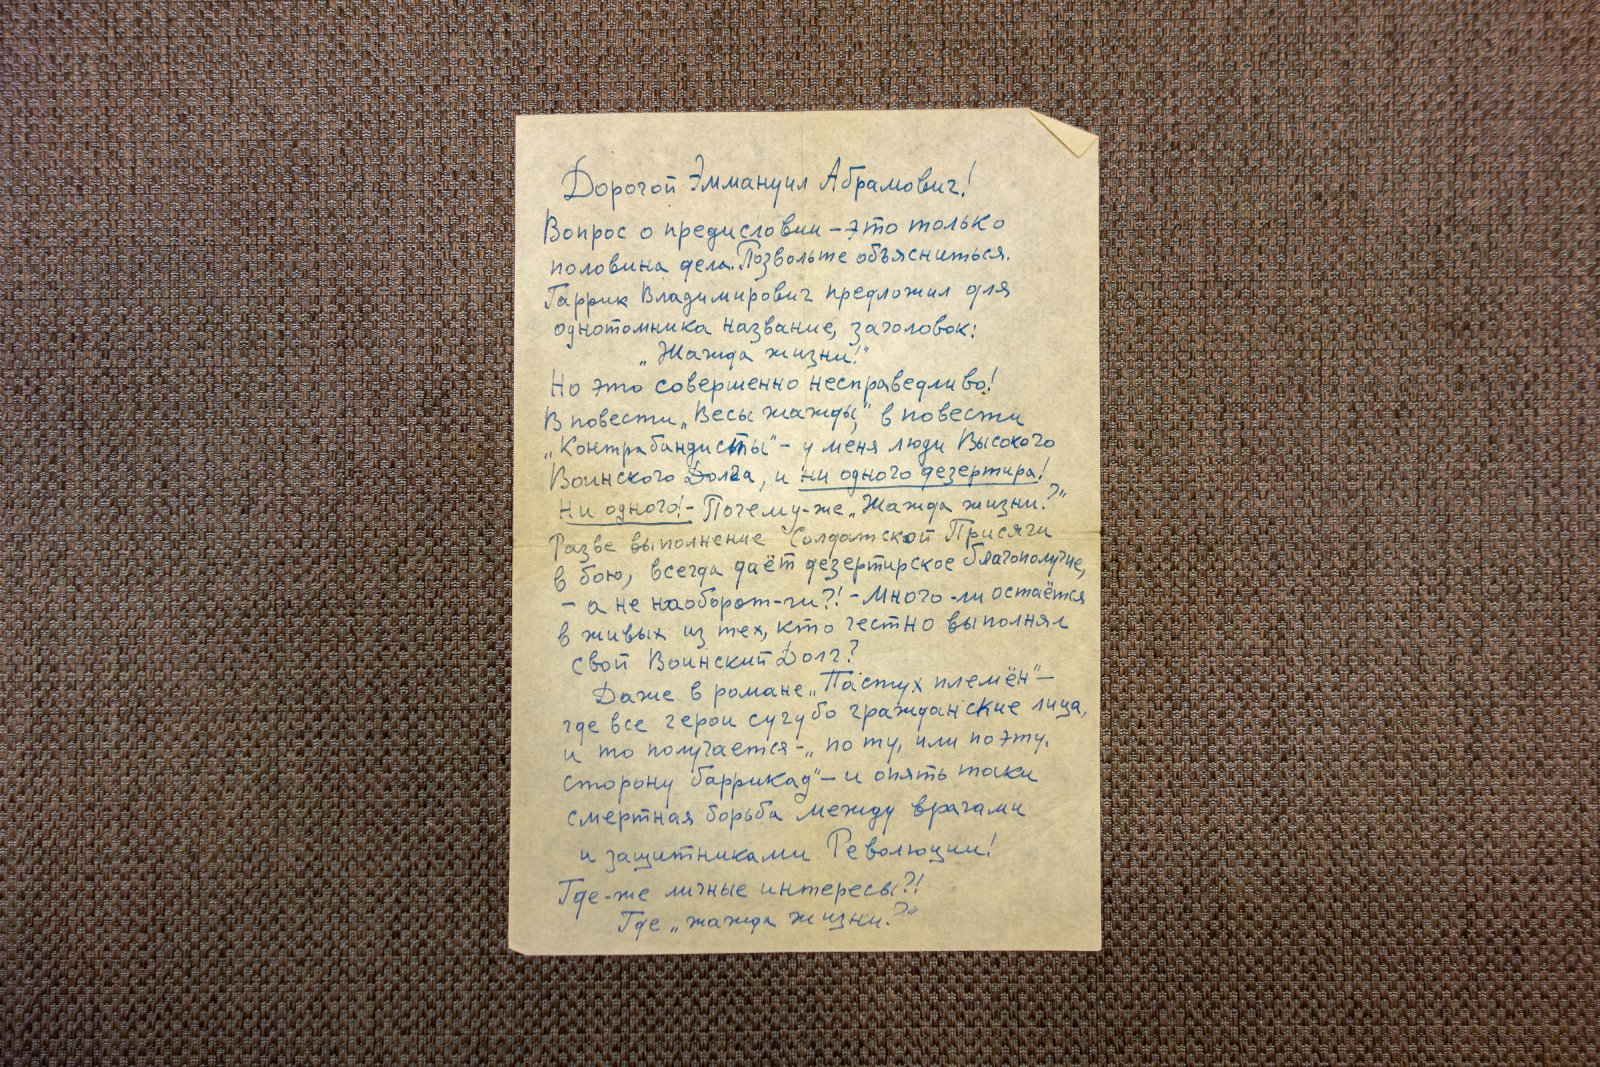 Дорогой Эммануил Абрамович!
Вопрос о предисловии – это только
половина дела. Позвольте объясниться.
Гаррик Владимирович предложил для
однотомника название, заголовок:
„Жажда жизни!"
Но это совершенно несправедливо!
В повести „Весы жажды," в повести
„Контрабандисты" – у меня люди Высокого
Воинского Долга, и ни одного дезертира!
Ни одного! – Почему-же „Жажда жизни?"
Разве выполнение Солдатской Присяги
в бою, всегда даёт дезертирское благополучие,
– а не наоборот-ли?! – Много-ли остаётся
в живых из тех, кто честно выполнял
свой Воинский Долг?
Даже в романе „Пастух племён" –
где все герои сугубо гражданские лица,
и то получается – „по ту, или по эту,
сторону баррикад" – и опять таки
смертная борьба между врагами
и защитниками Революции!
Где-же личные интересы?!
Где „жажда жизни?"